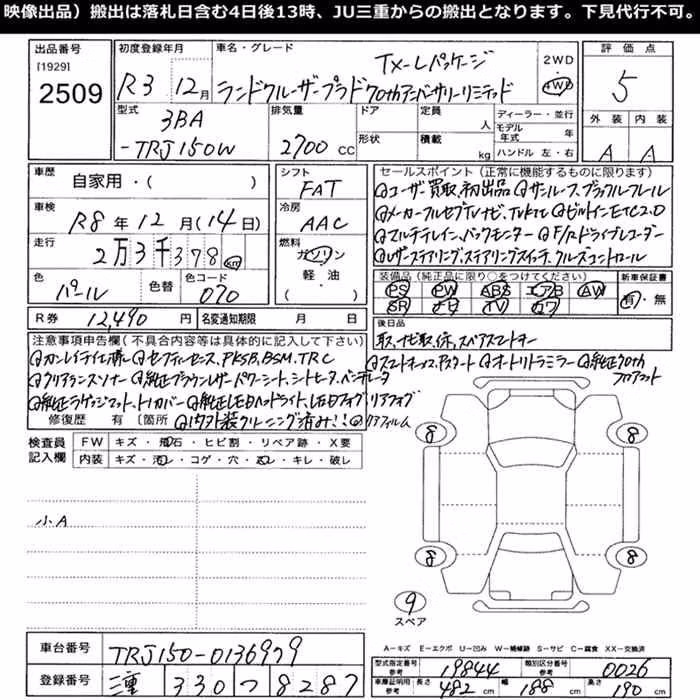 映像出品）搬出は落札日含む4日後13時、JU三重からの搬出となります。下見代行不可。
出品番号 初度登録年月 車名・グレード TX-Lパッケージ 2WD 評価点
[1929]
2509 R3 12月 ランドクルーザープラド70thアニバーサリーリミテッド 4WD 5
型式 排気量 ドア 定員 人 ディーラー・並行 外装 内装
3BA 形状 積載 kg モデル年式 年
-TRJ150W 2700cc ハンドル 左・右 A A
車歴 自家用・( ) シフト FAT セールスポイント（正常に機能するものに限ります）
◎ユーザー買取、初出品 ◎サンルーフ、ブラックルーフレール
車検 R8年12月(14日) 冷房 AAC ◎メーカーフルセグTVナビ、TVkit ◎ビルトインETC2.0
走行 2万3千378km 燃料 ガソリン ◎マルチテレイン、バックモニター ◎F/Rドライブレコーダー
軽・油 ◎レザーステアリング、ステアリングスイッチ、クルーズコントロール
色 パール 色替 色コード 070 ( )
装備品（純正品に限り○をつけてください） 新車保証書
PS PW ABS エアB AW 有・無
SR ナビ TV カワ
R券 12,490円 名変通知期限 月 日
後日品
取、ナビ取、保、スペアスマートキー
注意事項申告欄（不具合内容等は具体的に記入して下さい）
◎セーフティセンス、PKSB、BSM、TRC ◎スマートキー×2、Pスタート ◎オートリトラミラー ◎純正70th
フロアマット
◎クリアランスソナー ◎純正ブラウンレザーパワーシート、シートヒータ、ベンチレータ
◎純正ラゲッジマット、トノカバー ◎純正LEDヘッドライト、LEDフォグ、リアフォグ
修復歴 有 〔箇所 ◎内外装クリーニング済み!! ◎リアフィルム
検査員記入欄 FW キズ・飛石・ヒビ割・リペア跡・X要
内装 キズ・汚れ・コゲ・穴・スレ・キレ・破レ
小A
8 8
8 8
9
スペア
A－キズ E－エクボ U－凹み W－補修跡 S－サビ C－腐食 XX－交換済
車台番号 TRJ150-0136979
型式指定番号 19844 類別区分番号 0026
登録番号 三重 330 つ 8287
車庫証明用 長さ 482cm 幅 188cm 高さ 190cm